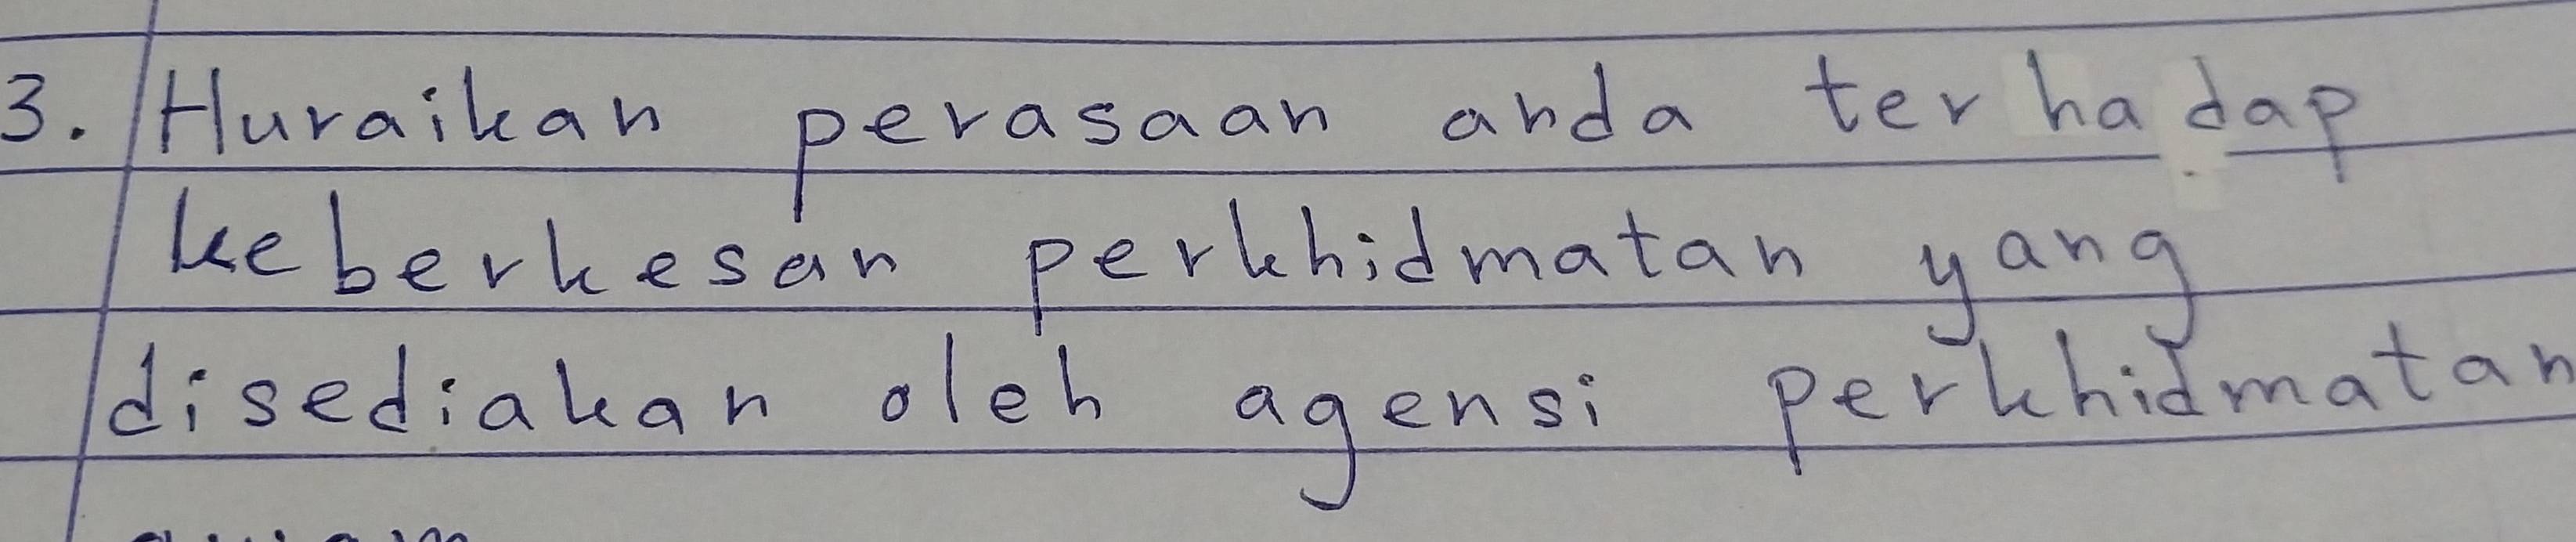 3. Huraikan perasaan anda terhadap
keberkesan perkhidmatan yang
disediakan oleh agensi perkhidmatan